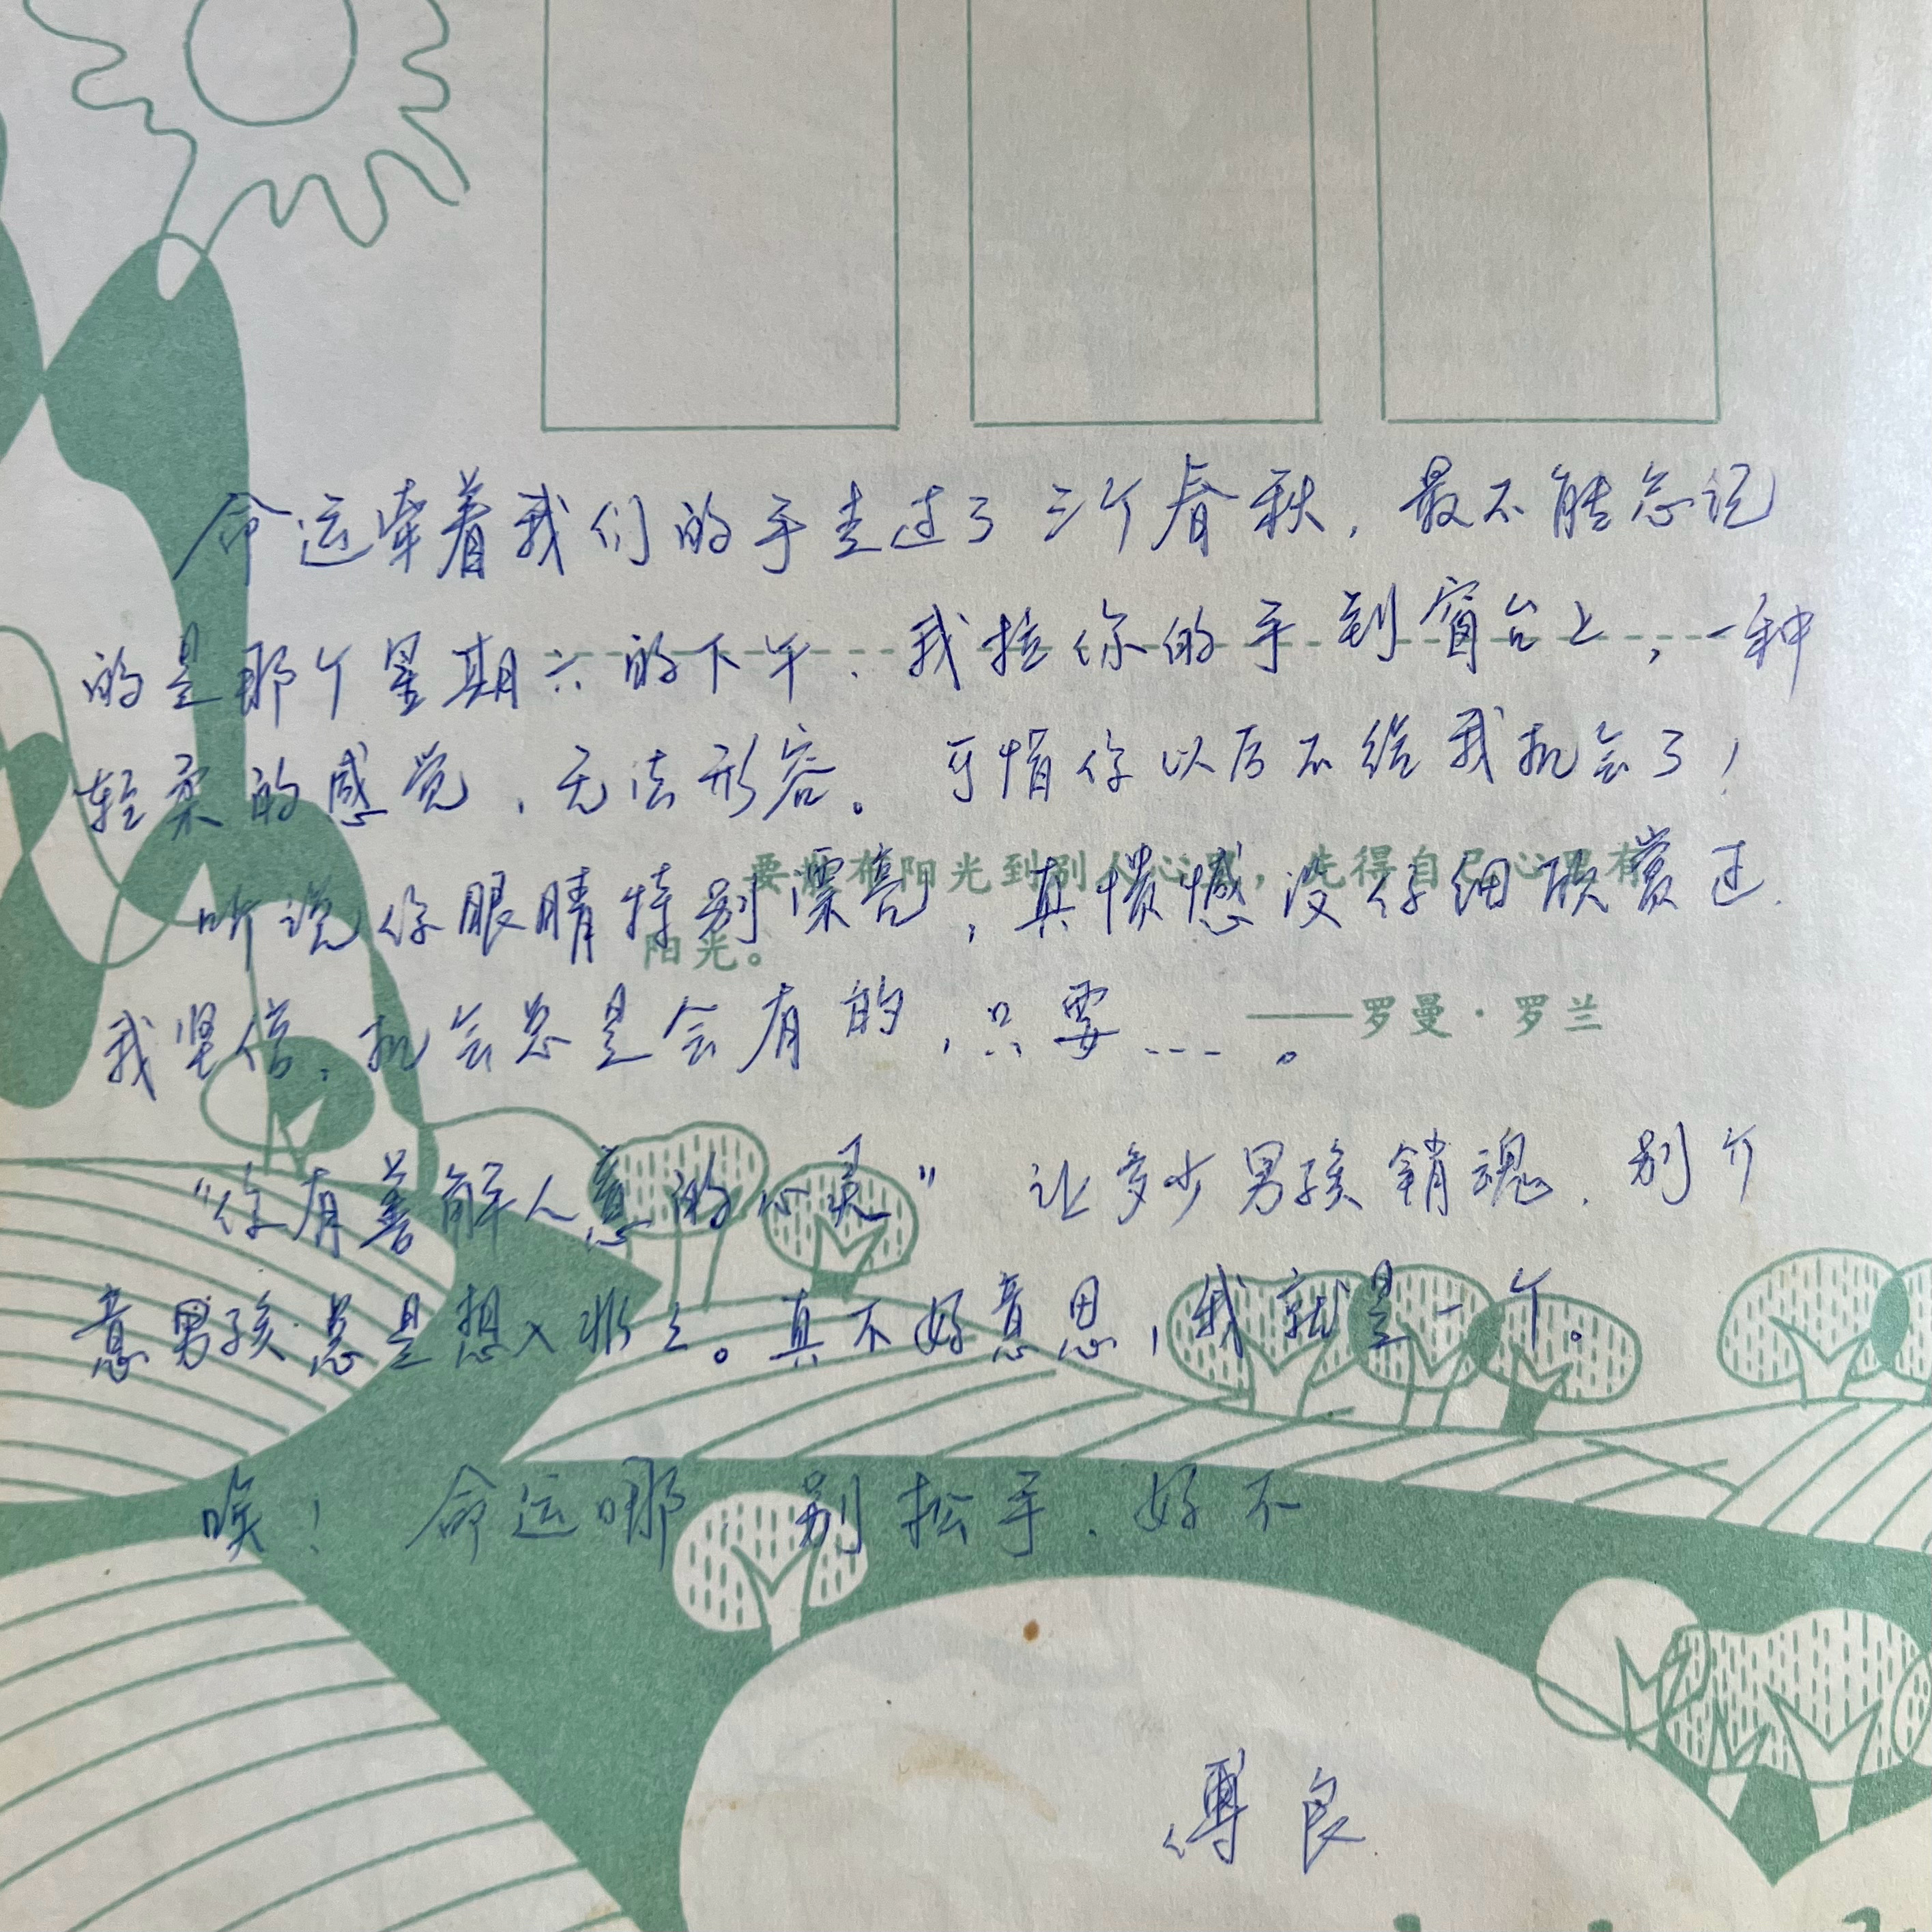 命运牵着我们的手走过了三个春秋，最不能忘记
的是那个星期六的下午，我拉你的手到窗台上，一种
轻柔的感觉，无法形容。可惜你以后不给我机会了！
要散布阳光到别人心里，先得自己心里有
听说你眼睛特别漂亮，真愤憾没仔细欣赏过.
阳光。
我坚信，机会总是会有的，只要……。
——罗曼·罗兰
“你有善解人意的心灵” 让多少男孩销魂，别介
意男孩总是想入非非。真不好意思，我就是一个。
唉！ 命运哪 别松手，好不
傅良